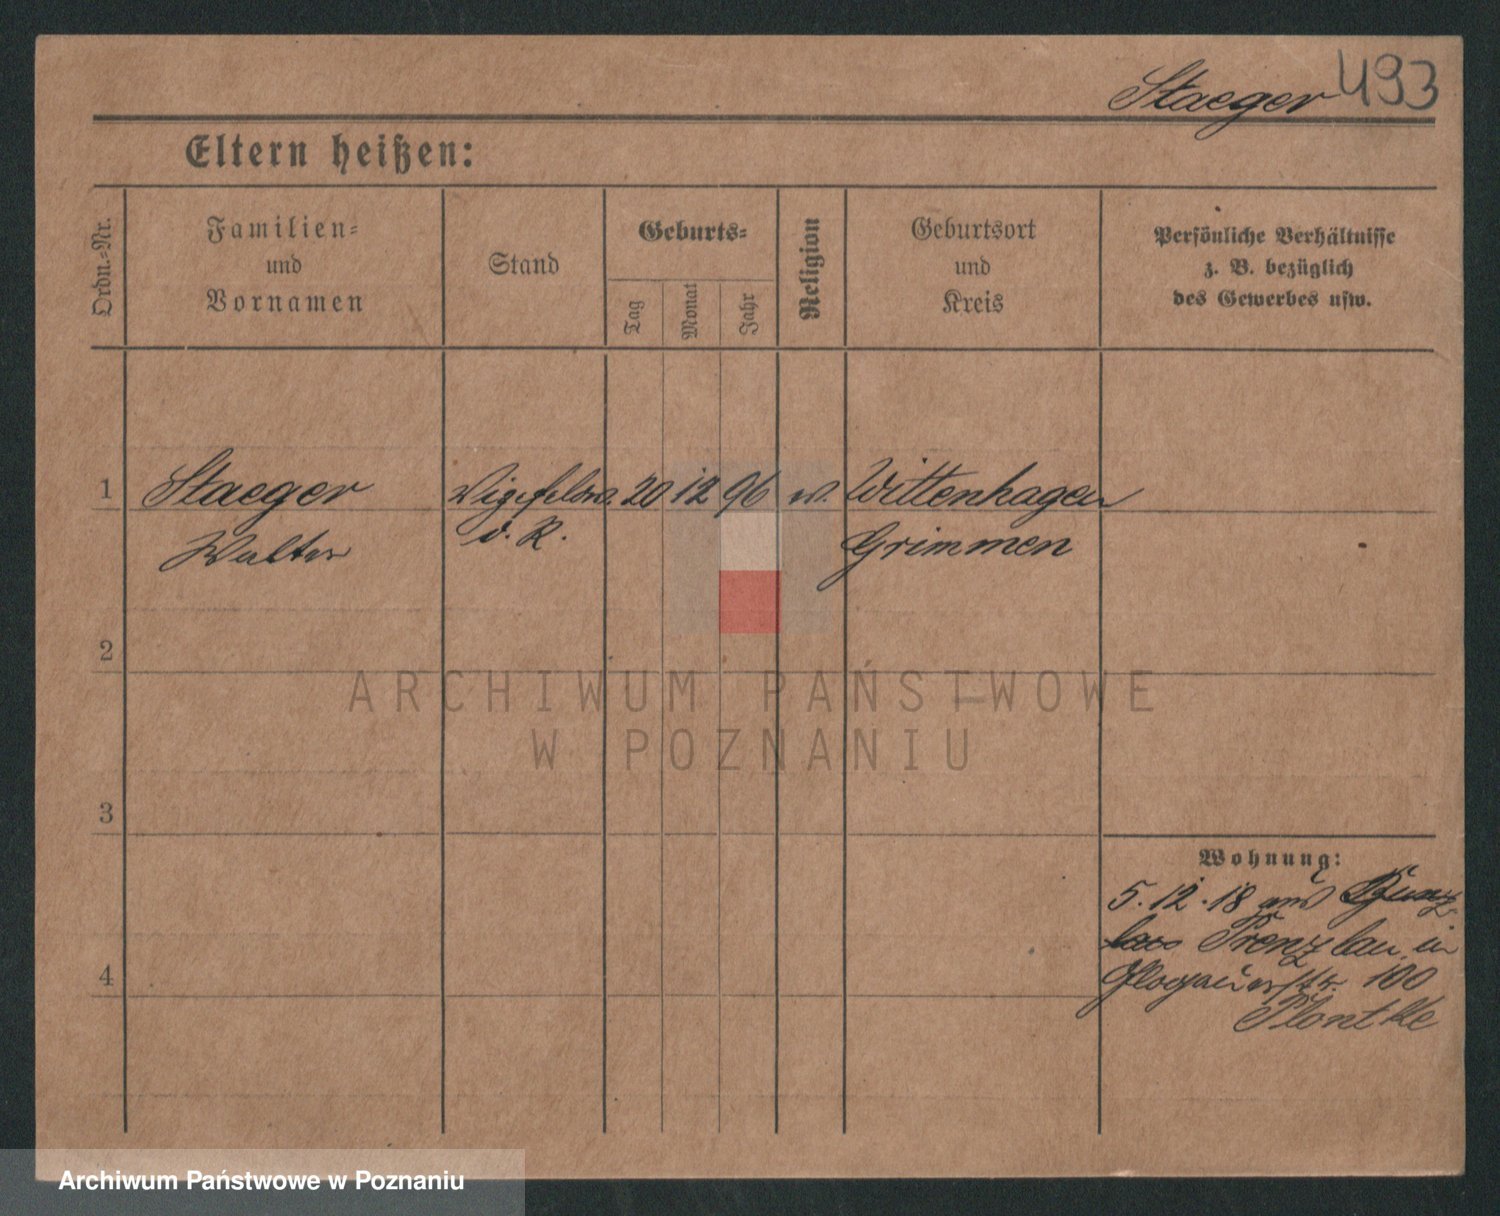 Staeger 493
Eltern heißen:
Ordn.-Nr.
Familien-
und
Vornamen
Stand
Geburts-
Tag
Monat
Jahr
Religion
Geburtsort
und
Kreis
Persönliche Verhältnisse
z. B. bezüglich
des Gewerbes usw.
1 Staeger Vizefeldw. 20 12 96 ev. Wittenhagen
Walter d. R. Grimmen
2
3
4
Wohnung:
5.12.18 aus Bunz-
lau Prenzlau in
Glogauerstr. 100
Plontke
ARCHIWUM PAŃSTWOWE
W POZNANIU
Archiwum Państwowe w Poznaniu